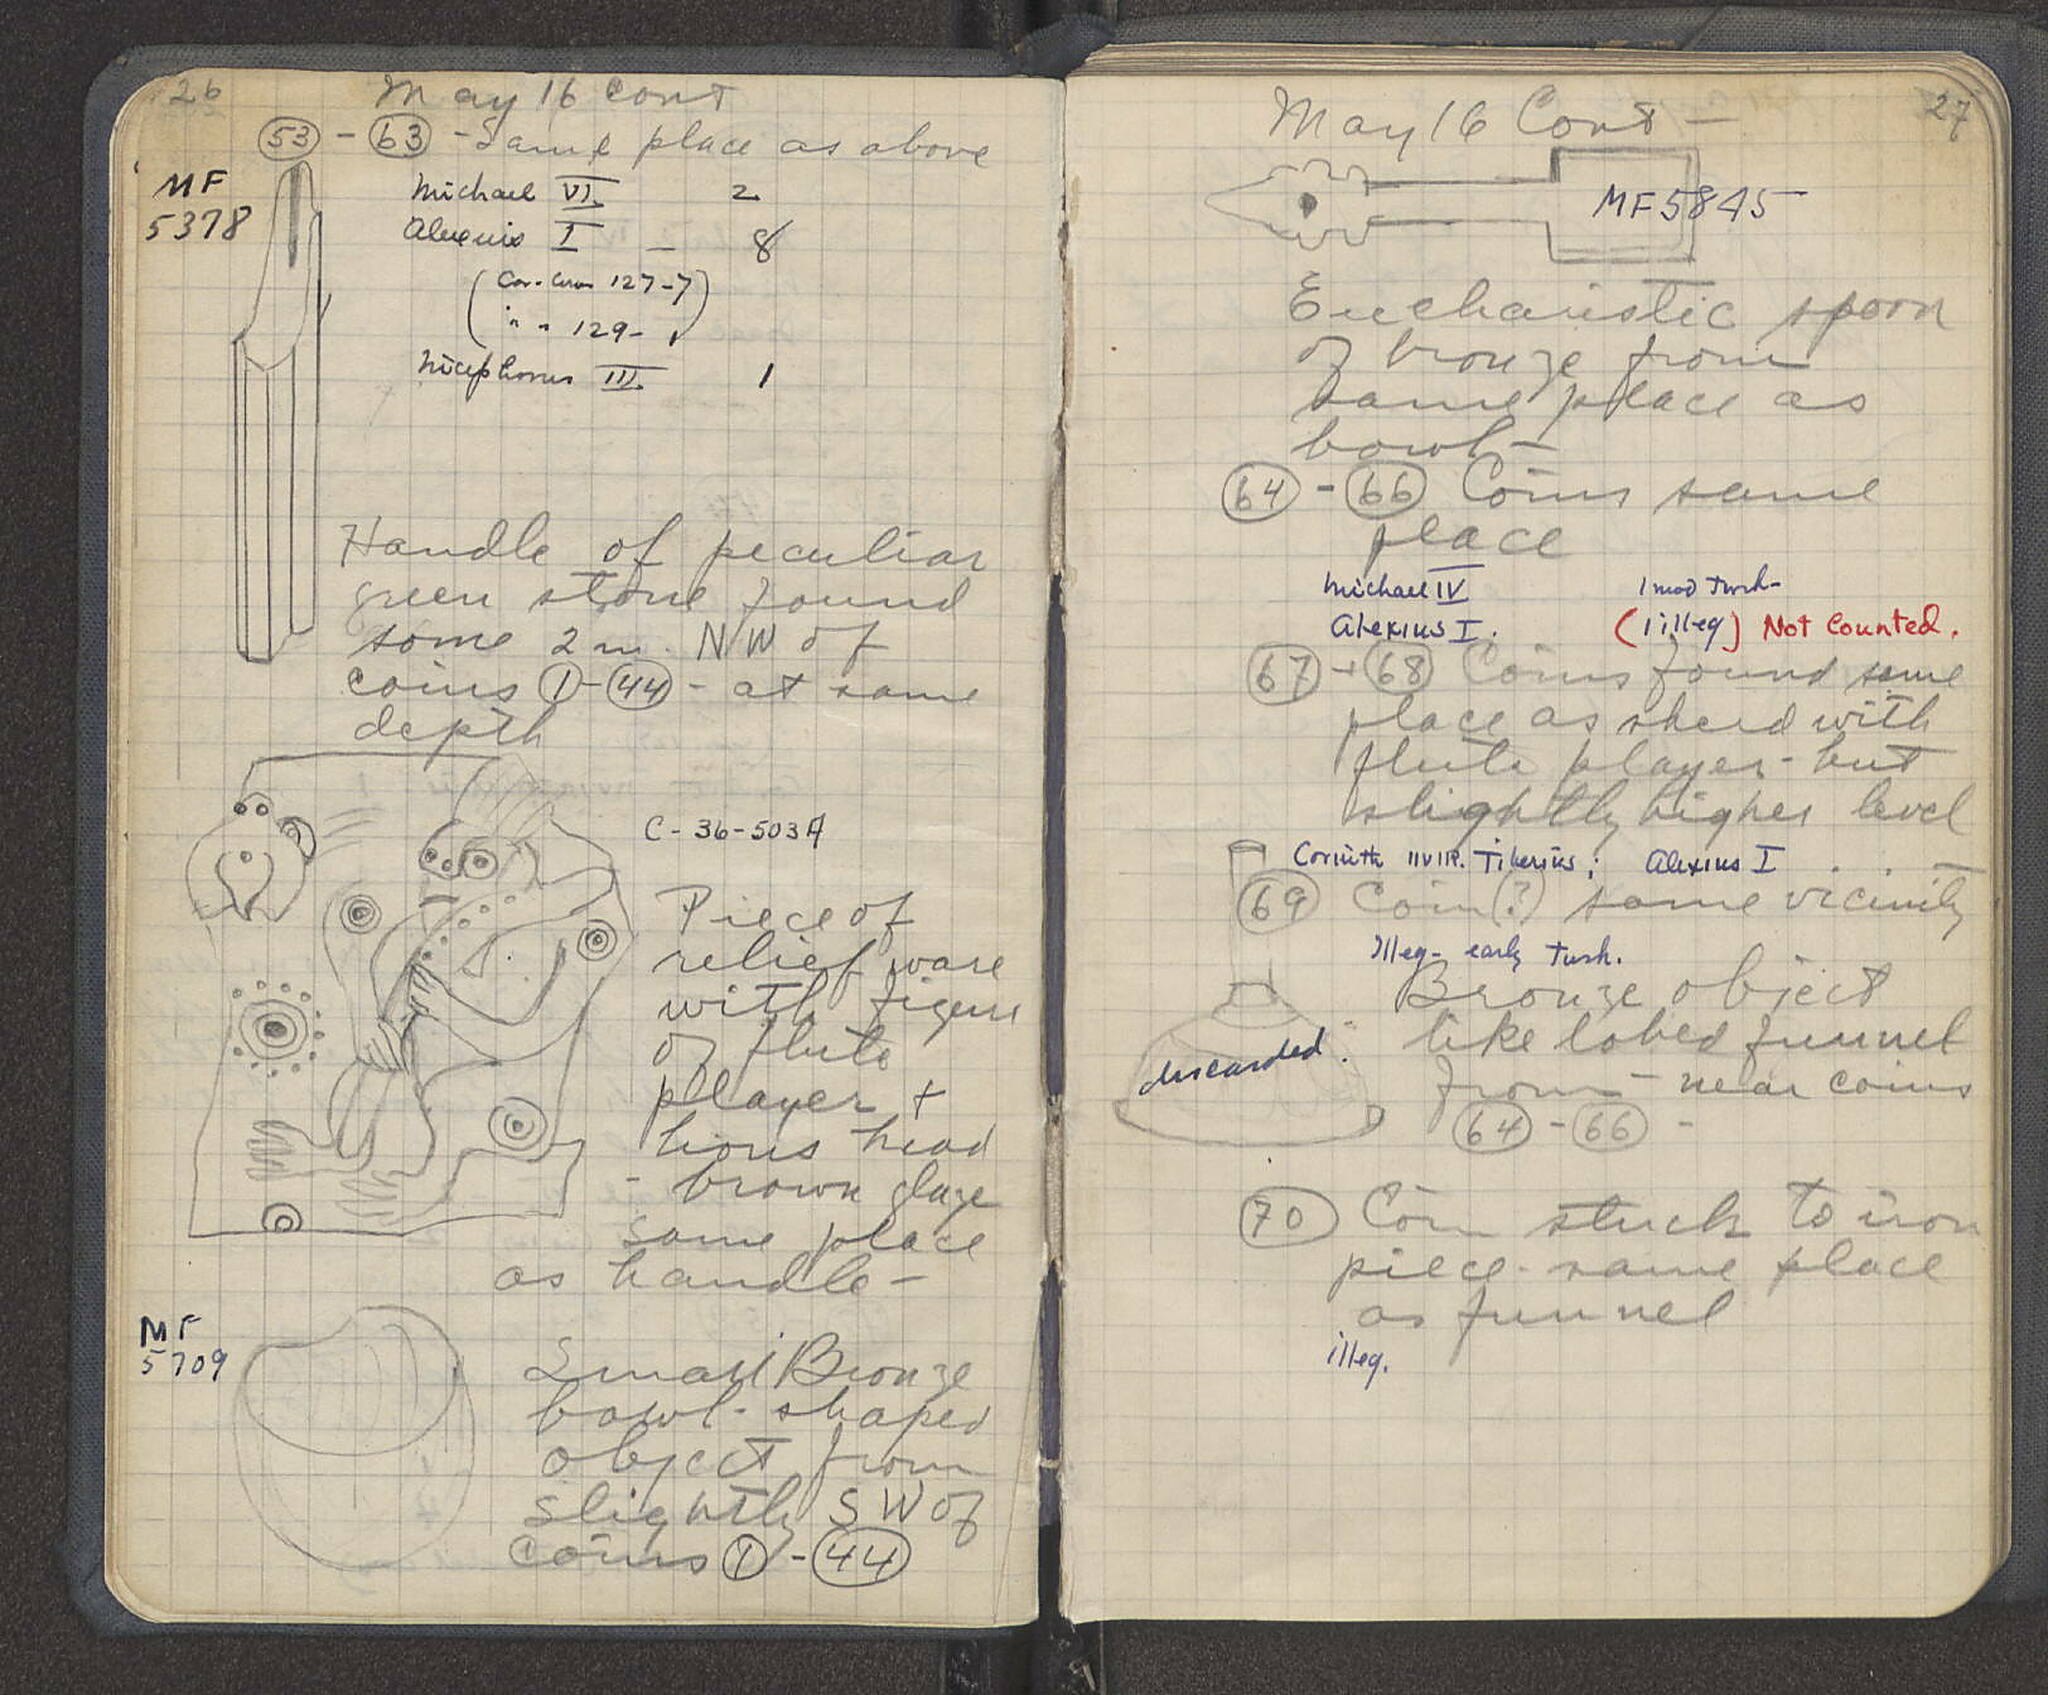 26
May 16 cont
(53) - (63) - Same place as above
MF
5378
Michael VI. 2
Alexius I - 8
(Cor. 127-7)
" " 129-
Nicephorus III 1
Handle of peculiar
green stone found
some 2 m. NW of
coins (1)-(44) - at same
depth
C-36-503A
Piece of
relief ware
with figure
of flute
player +
lions head
- brown glaze
same place
as handle -
MF
5709
Small Bronze
bowl-shaped
object from
slightly SW of
coins (1) - (44)
27
May 16 Cont -
MF 5845
Eucharistic spoon
of bronze from
same place as
bowl -
(64) - (66) Coins same
place
Michael IV 1 mod Turk-
Alexius I. (1 illeg) Not Counted.
(67) + (68) Coins found same
place as sherd with
flute player - but
slightly higher level
Corinth IIVIR. Tiberius; Alexius I
(69) Coin (?) same vicinity
Illeg- early Turk.
Bronze object
like lobed funnel
from - near coins
(64) - (66) -
discarded.
(70) Coin stuck to iron
piece - same place
as funnel
illeg.